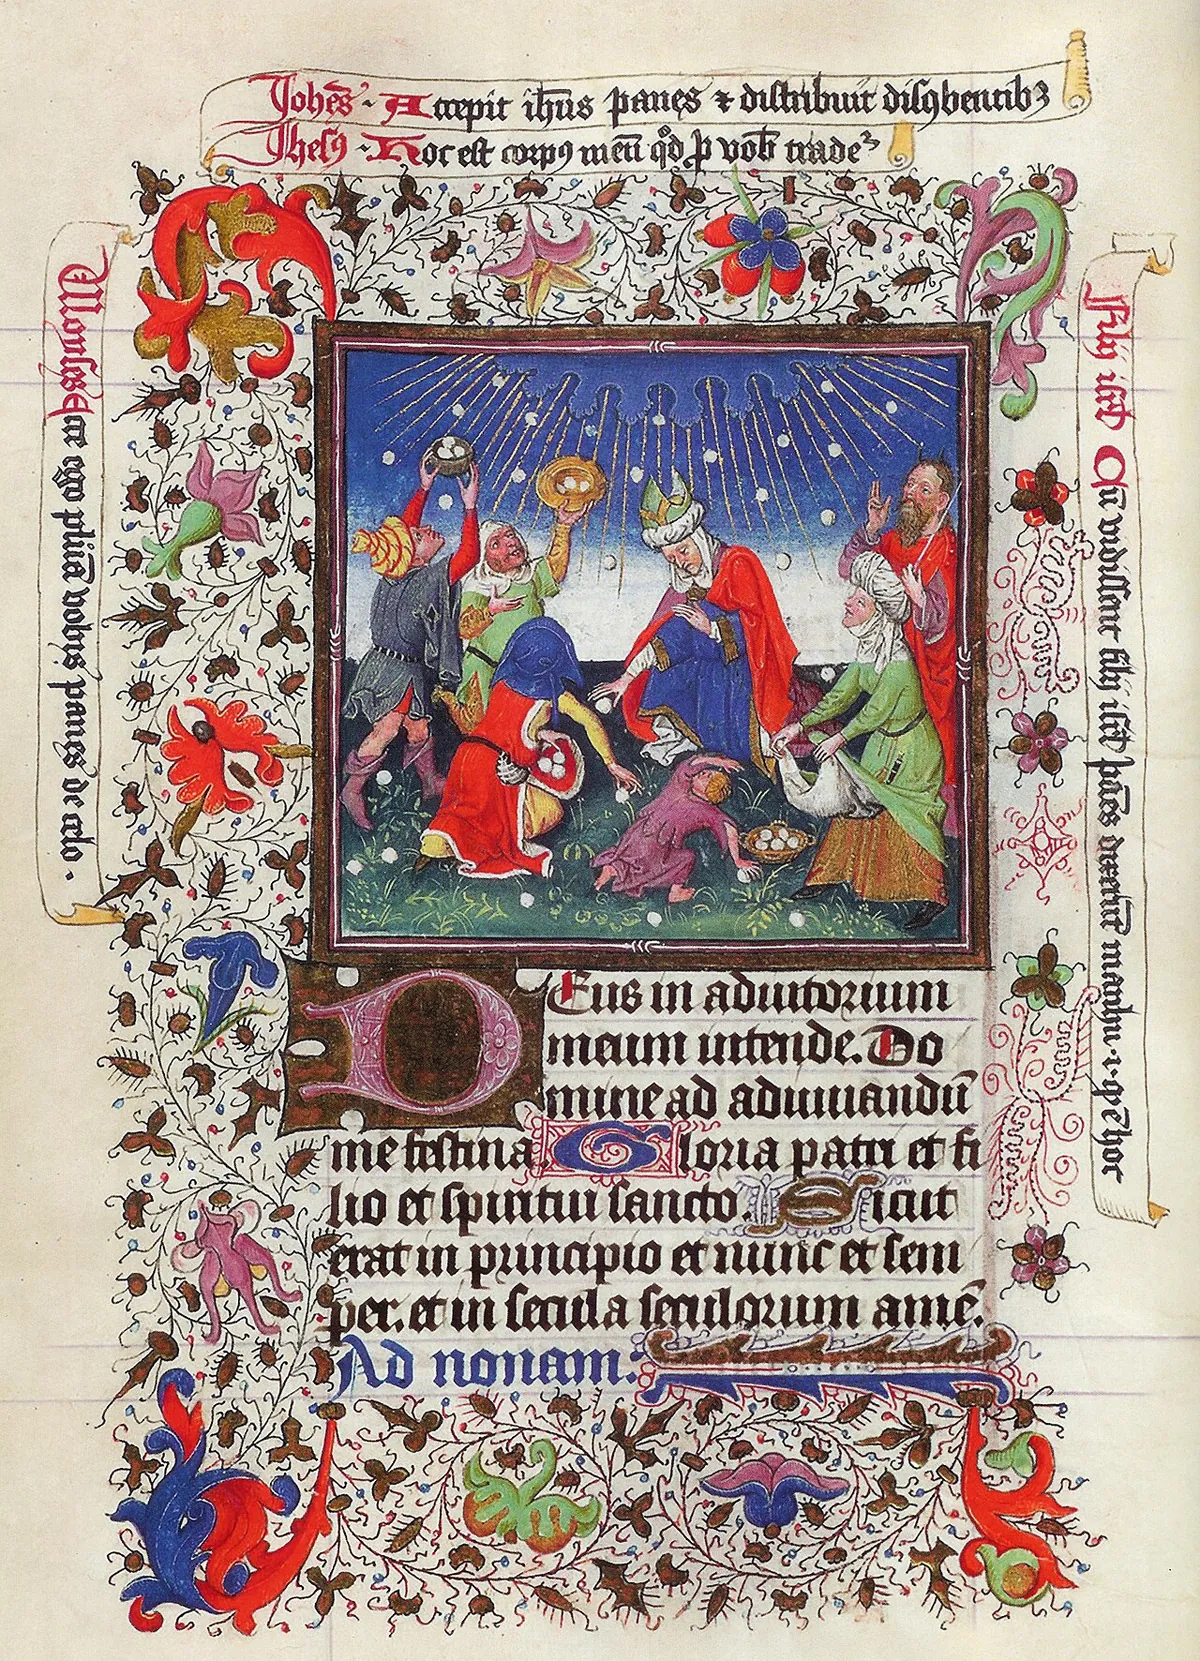 Johēs · Accepit ihūs panes ⁊ distribuit discūbentibꝫ
Jhesꝯ · Hoc est corpꝯ meū qd̊ ꝓ vob̄ tradeʳ
Moyses Ecce ego pluā vobis panes de celo .
filij isrl̄ Qd̄ vidissent filij isrl̄
Deus in adiutorium
meum intende. Do
mine ad adiuuandū
me festina. Gloria patri et fi
lio et spiritui sancto. Sicut
erat in principio et nunc et sem
per. et in secula seculorum amē.
Ad nonam: